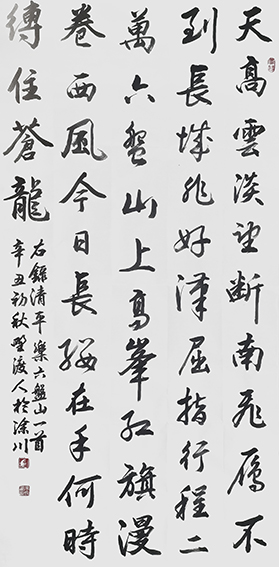 天高雲淡望斷南飛鴈不
到長城非好漢屈指行程二
萬六盤山上高峯紅旗漫
卷西風今日長纓在手何時
縛住蒼龍
右錄清平樂六盤山一首
辛丑初秋野渡人於滁川